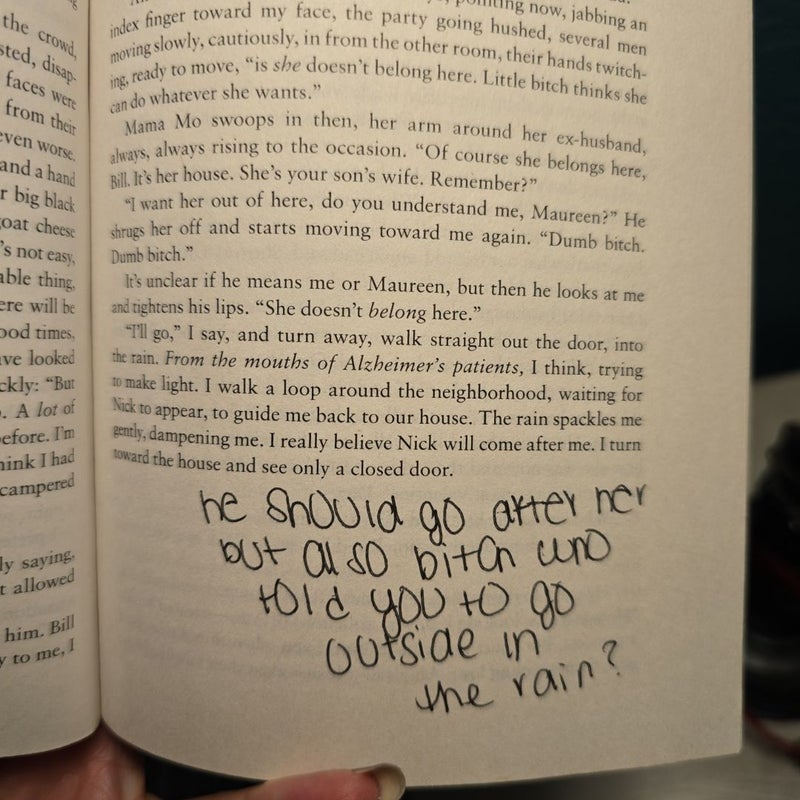 the crowd,
sted, disap-
faces were
from their
even worse.
and a hand
r big black
oat cheese
's not easy,
able thing,
ere will be
ood times.
ve looked
ckly: "But
. A lot of
efore. I'm
hink I had
campered
ly saying,
t allowed
him. Bill
y to me, I
now, jabbing an
index finger toward my face, the party going hushed, several men
moving slowly, cautiously, in from the other room, their hands twitch-
ing, ready to move, "is she doesn't belong here. Little bitch thinks she
can do whatever she wants."
Mama Mo swoops in then, her arm around her ex-husband,
always, always rising to the occasion. "Of course she belongs here,
Bill. It's her house. She's your son's wife. Remember?"
"I want her out of here, do you understand me, Maureen?" He
shrugs her off and starts moving toward me again. "Dumb bitch.
Dumb bitch."
It's unclear if he means me or Maureen, but then he looks at me
and tightens his lips. "She doesn't belong here."
"I'll go," I say, and turn away, walk straight out the door, into
the rain. From the mouths of Alzheimer's patients, I think, trying
to make light. I walk a loop around the neighborhood, waiting for
Nick to appear, to guide me back to our house. The rain spackles me
gently, dampening me. I really believe Nick will come after me. I turn
toward the house and see only a closed door.
he should go after her
but also bitch who
told you to go
outside in
the rain?